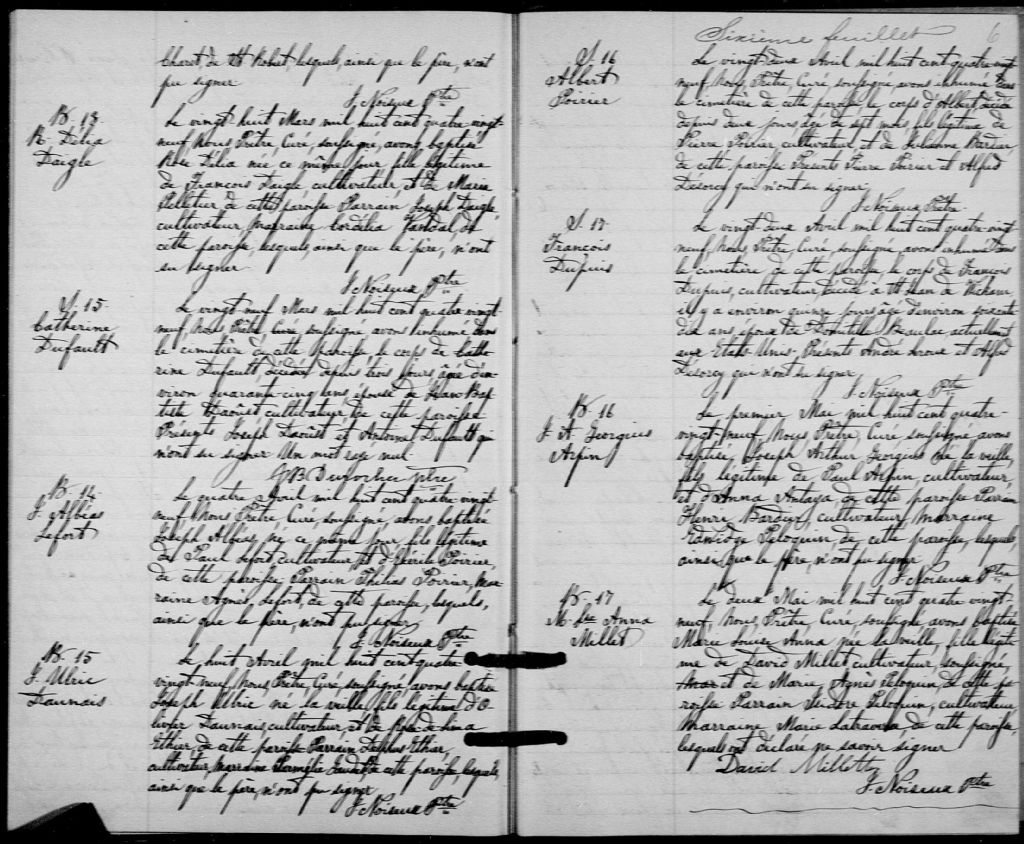 Charet, de St Robert, lesquels, ainsi que le père, n'ont
pu signer
J Noiseux Ptre
B. 13
R. Délia
Daigle
Le vingt huit Mars mil huit cent quatre-vingt-
neuf, Nous, Prêtre, Curé, soussigné, avons baptisé
Rose Délia née ce même jour, fille légitime
de François Daigle cultivateur, et de Marie
Pelletier de cette paroisse Parrain Joseph Daigle,
cultivateur, Marraine Cordélia de
cette paroisse, lesquels, ainsi que le père, n'ont
su signer
J Noiseux Ptre
S. 15
Catherine
Dufault
Le vingt neuf Mars mil huit cent quatre vingt-
neuf, Nous Prêtre, Curé soussigné avons inhumé dans
le cimetière de cette paroisse le corps de Cathe-
rine Dufault, décédée depuis trois jours, âgée d'en-
viron quarante-cinq ans, épouse de Jean Bap-
tiste Daoûst cultivateur de cette paroisse
Présents Joseph Daoûst et Antoine Dufault qui
n'ont su signer Un mot rayé nul.
J B Durocher ptre
B. 14
J. Albéas
Lefort
Le quatre Avril mil huit cent quatre vingt-
neuf, Nous Prêtre, Curé, soussigné, avons baptisé
Joseph Albéas, né ce même jour, fils légitime
de Paul Lefort cultivateur, et d'Exérie Poirier,
de cette paroisse, Parrain Philias Poirier, Mar-
raine Agnès Lefort, de cette paroisse, lesquels,
ainsi que le père, n'ont pu signer
J. Noiseux Ptre
B. 15
J. Ulric
Daunais
Le huit Avril mil huit cent quatre
vingt-neuf, Nous, Prêtre, Curé, soussigné, avons baptisé
Joseph Ulric né la veille, fils légitime d'O-
livier Daunais, cultivateur, et de Rose de Lima
Ethier, de cette paroisse Parrain Ethier,
cultivateur, Marraine de cette paroisse, lesquels,
ainsi que le père, n'ont pu signer
J Noiseux Ptre
Sixième feuillet 6
S. 16
Albert
Poirier
Le vingt deux Avril mil huit cent quatre vingt
neuf, Nous, Prêtre, Curé, soussigné, avons inhumé dans
le cimetière de cette paroisse le corps d'Albert, décédé
depuis deux jours, âgé de sept mois, fils légitime de
Pierre Poirier cultivateur, et de
de cette paroisse Présents Pierre Poirier et Alfred
Desorcy qui n'ont su signer
J Noiseux Prêtre
S. 17
François
Dupuis
Le vingt deux Avril mil huit cent quatre-vingt-
neuf, Nous, Prêtre, Curé, soussigné, avons inhumé dans
le cimetière de cette paroisse, le corps de François
Dupuis, cultivateur, décédé à
il y a environ quinze jours, âgé d'environ soixante
dix ans, époux de Domitile Beaulac actuellement
aux Etats-Unis. Présents André et Alfred
Desorcy qui n'ont su signer
J Noiseux Ptre
B. 16
J. A. Georgius
Arpin
Le premier Mai mil huit cent quatre-
vingt-neuf, Nous, Prêtre, Curé, soussigné, avons
baptisé Joseph Arthur Georgius né la veille,
fils légitime de Paul Arpin, cultivateur,
et d'Anna Antaya de cette paroisse Parrain
Henri Bardier, cultivateur, Marraine
Péloquin, de cette paroisse, lesquels,
ainsi que le père, n'ont pu signer
J. Noiseux Ptre
B. 17
M. Lse Anna
Millet
Le deux Mai mil huit cent quatre vingt
neuf, Nous, Prêtre, Curé, soussigné, avons baptisé
Marie Louise Anna née la veille, fille légiti-
me de David Millet, cultivateur, soussigné,
et de Marie Agnès Péloquin, de cette pa-
roisse Parrain Isidore Péloquin, cultivateur,
Marraine Marie Latraverse, de cette paroisse,
lesquels ont déclaré ne savoir signer
David Millette
J. Noiseux Ptre